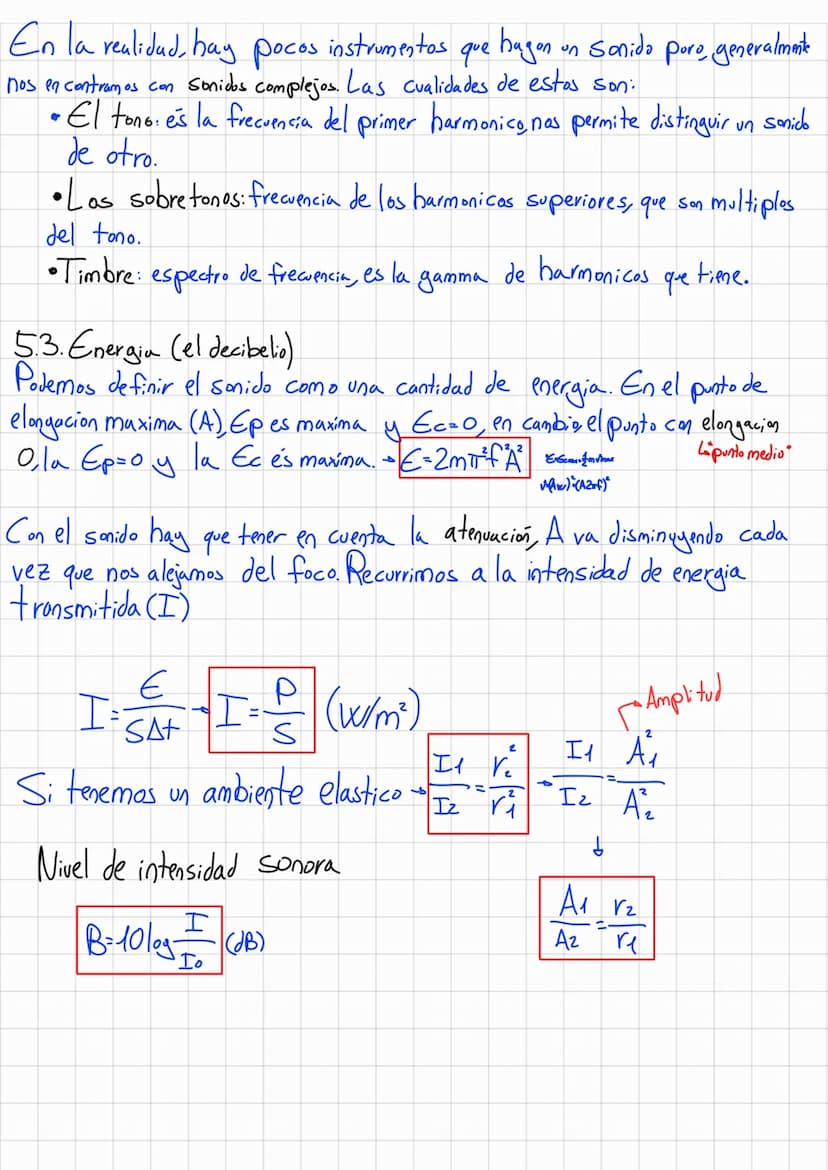 En la realidad, hay pocos instrumentos que hagan un sonido puro, generalmente
nos encontramos con sonidos complejos. Las cualidades de estos son:
• El tono: és la frecuencia del primer harmonico, nos permite distinguir un sonido
de otro.
• Los sobretonos: frecuencia de los harmonicos superiores, que son multiples
del tono.
• Timbre: espectro de frecuencia, es la gamma de harmonicos que tiene.
5.3. Energia (el decibelio)
Podemos definir el sonido como una cantidad de energia. En el punto de
elongacion maxima (A), Ep es maxima y Ec=0, en cambio, el punto con elongacion
0, la Ep=0 y la Ec és maxima. → E=2mπ²f²A²
↳"punto medio"
Con el sonido hay que tener en cuenta la atenuación, A va disminuyendo cada
vez que nos alejamos del foco. Recurrimos a la intensidad de energia
transmitida (I)
I = E/SΔt → I = P/S (W/m²)
→ Amplitud
Si tenemos un ambiente elastico → I1/I2 = r2²/r1² → I1/I2 = A1²/A2²
↓
Nivel de intensidad sonora
A1/A2 = r2/r1
B=10log I/I0 (dB)